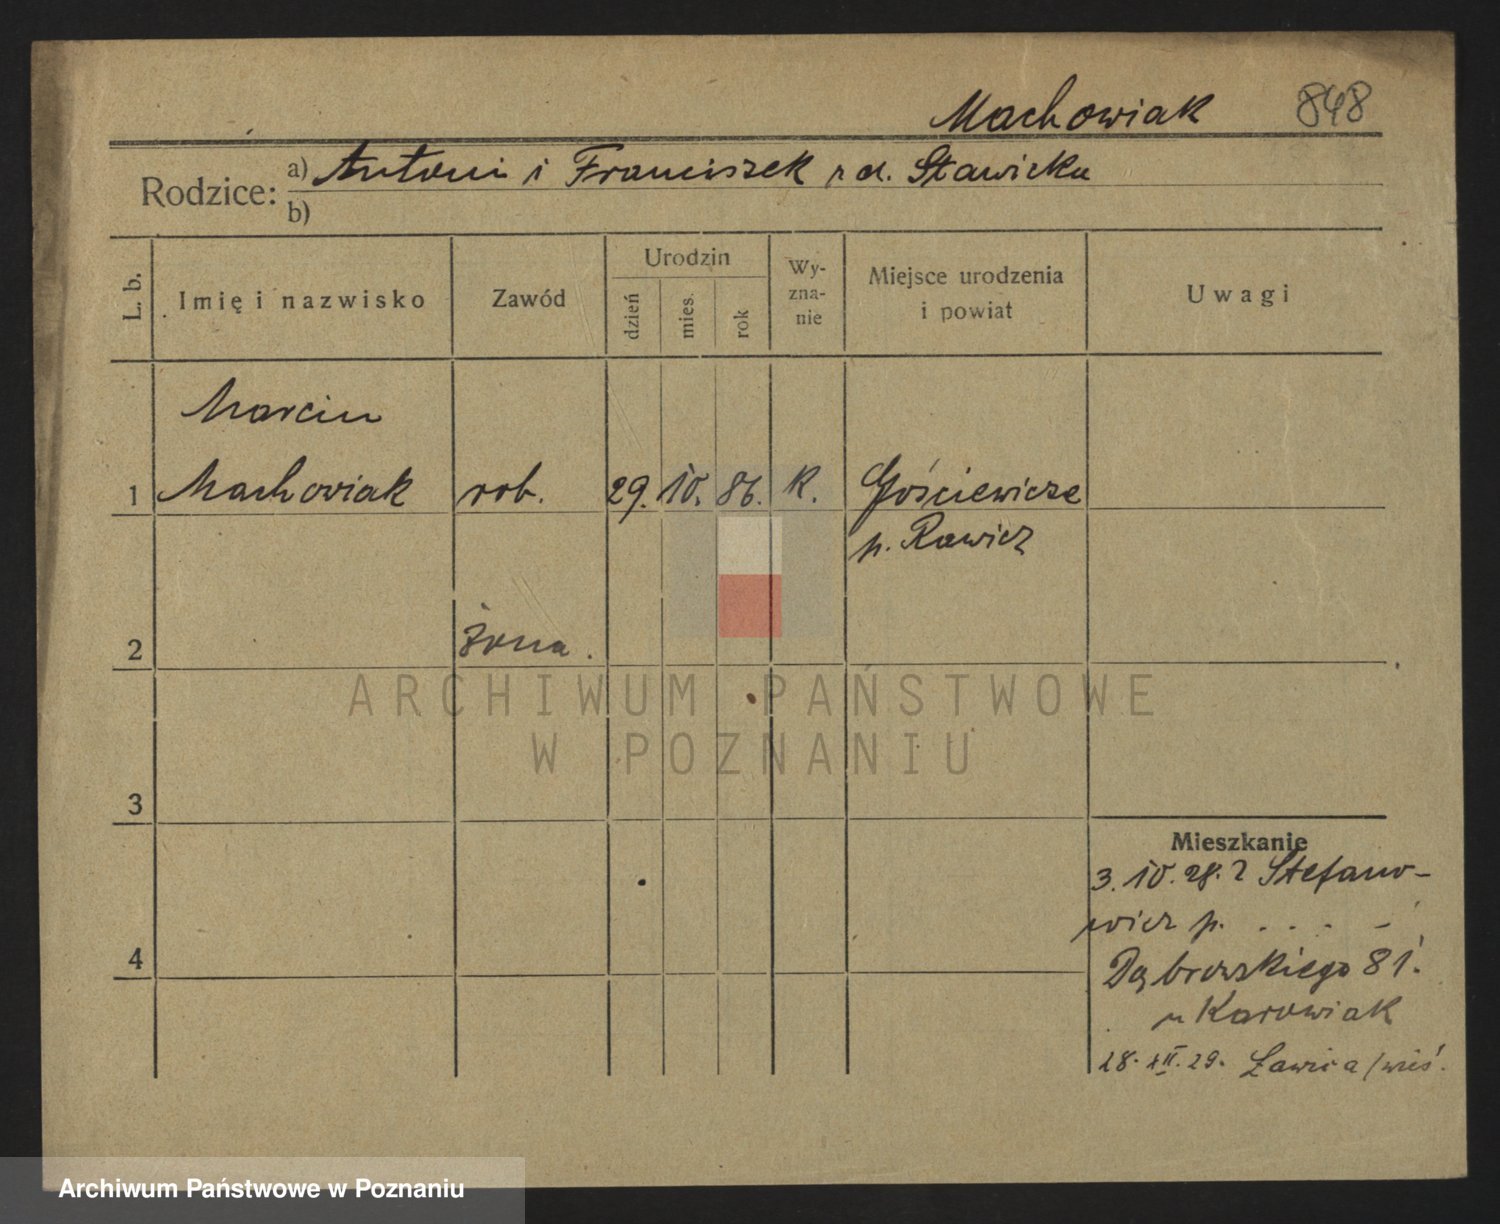 Machowiak 848
Rodzice: a) Antoni i Franciszek rd. Stawicka
b)
L. b. Imię i nazwisko Zawód Urodzin dzień mies. rok Wy-zna-nie Miejsce urodzenia i powiat Uwagi
Marcin
1 Machowiak rob. 29. 10. 86. K. Gościewicze
p. Rawicz
2 żona.
ARCHIWUM PAŃSTWOWE
W POZNANIU
3
Mieszkanie
3.10.28. Z Stefano-
wicz p. . . . -
4 Dąbrowskiego 81.
u Karowiak
28. XII. 29. Ławica / wieś.
Archiwum Państwowe w Poznaniu